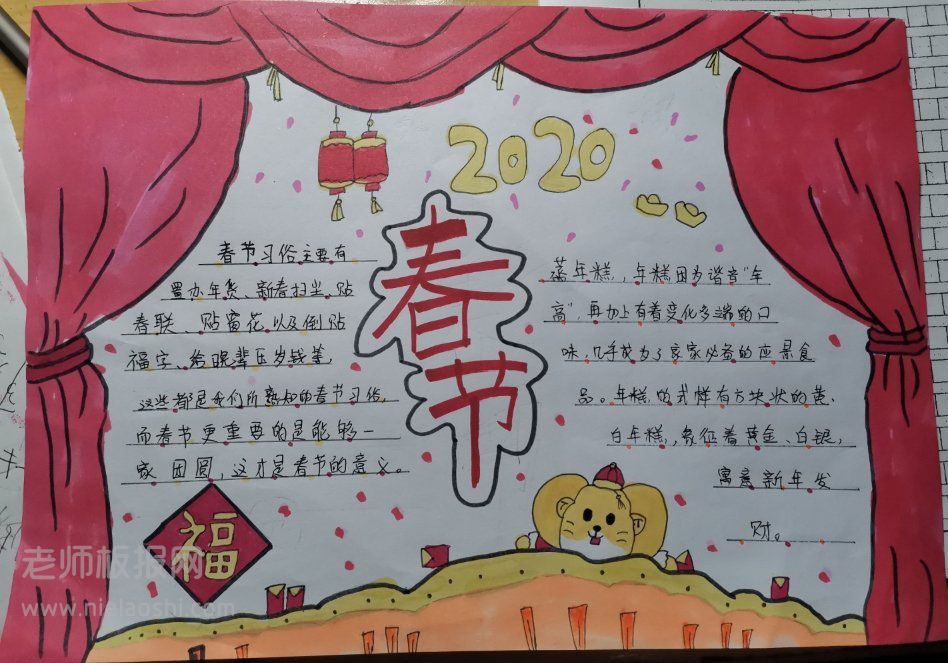 2020
春节
春节习俗主要有
置办年货、新春扫尘、贴
春联、贴窗花以及倒贴
福字、给晚辈压岁钱等,
这些都是我们所熟知的春节习俗,
而春节更重要的是能够一
家团圆,这才是春节的意义。
蒸年糕,年糕因为谐音“年
高”,再加上有着变化多端的口
味,几乎成为了家家必备的应景食
品。年糕的式样有方块状的黄、
白年糕,象征着黄金、白银,
寓意新年发
财。
福
老师板报网
www.nielaoshi.com